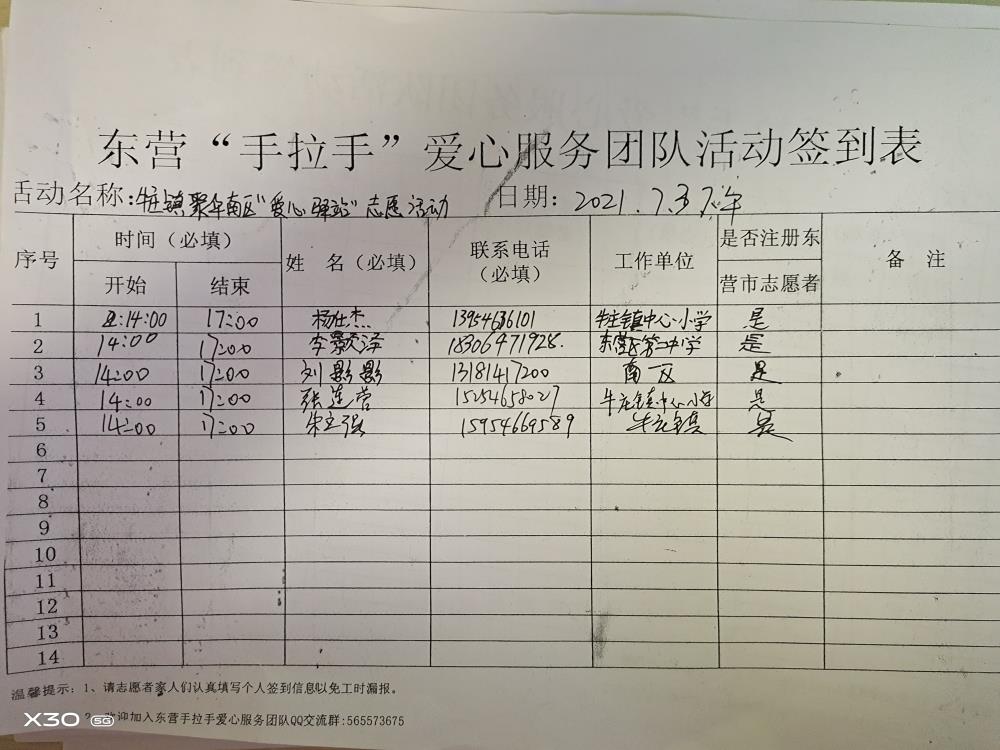 东营“手拉手”爱心服务团队活动签到表
活动名称:牛庄镇聚华南区“爱心驿站”志愿活动 日期: 2021.7.3下午
序号 时间（必填） 姓 名（必填） 联系电话（必填） 工作单位 是否注册东营市志愿者 备 注
开始 结束
1 14:00 17:00 杨仕杰 13954636101 牛庄镇中心小学 是
2 14:00 17:00 李景泽 18306471928. 东营区第二中学 是
3 14:00 17:00 刘影影 13181417200 南区 是
4 14:00 17:00 张连营 15254658027 牛庄镇中心小学 是
5 14:00 17:00 宋立强 15954669589 牛庄镇 是
6
7
8
9
10
11
12
13
14
温馨提示: 1、请志愿者家人们认真填写个人签到信息以免工时漏报。
2、欢迎加入东营手拉手爱心服务团队QQ交流群:565573675
X30 5G